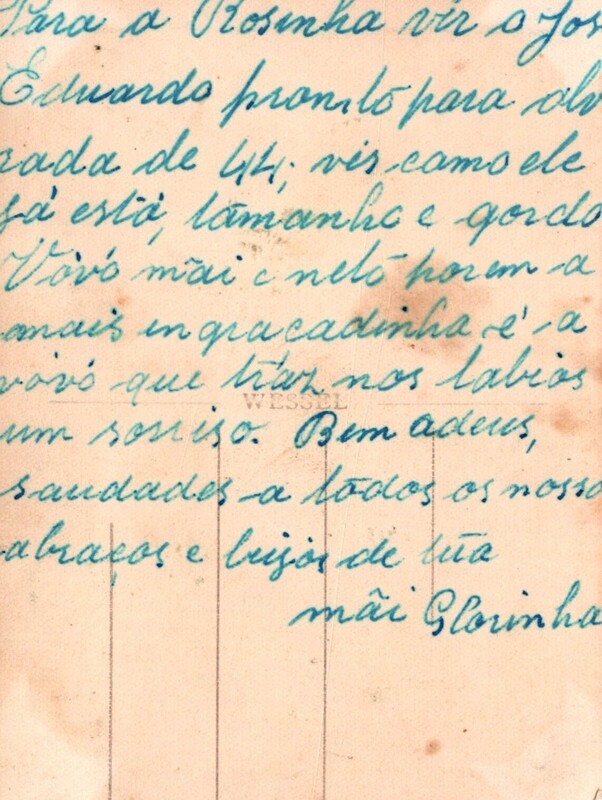 Para a Rosinha vir o Jos
Eduardo pronto para alv
rada de 44; vês como ele
já está, tamanho e gordo
Vóvó mãi e neto porem a
mais engraçadinha é a
vóvó que tráz nos labios
WESSEL
um sorriso. Bem adeus,
saudades a todos os nosso
abraços e beijos de tua
mãi Glorinha